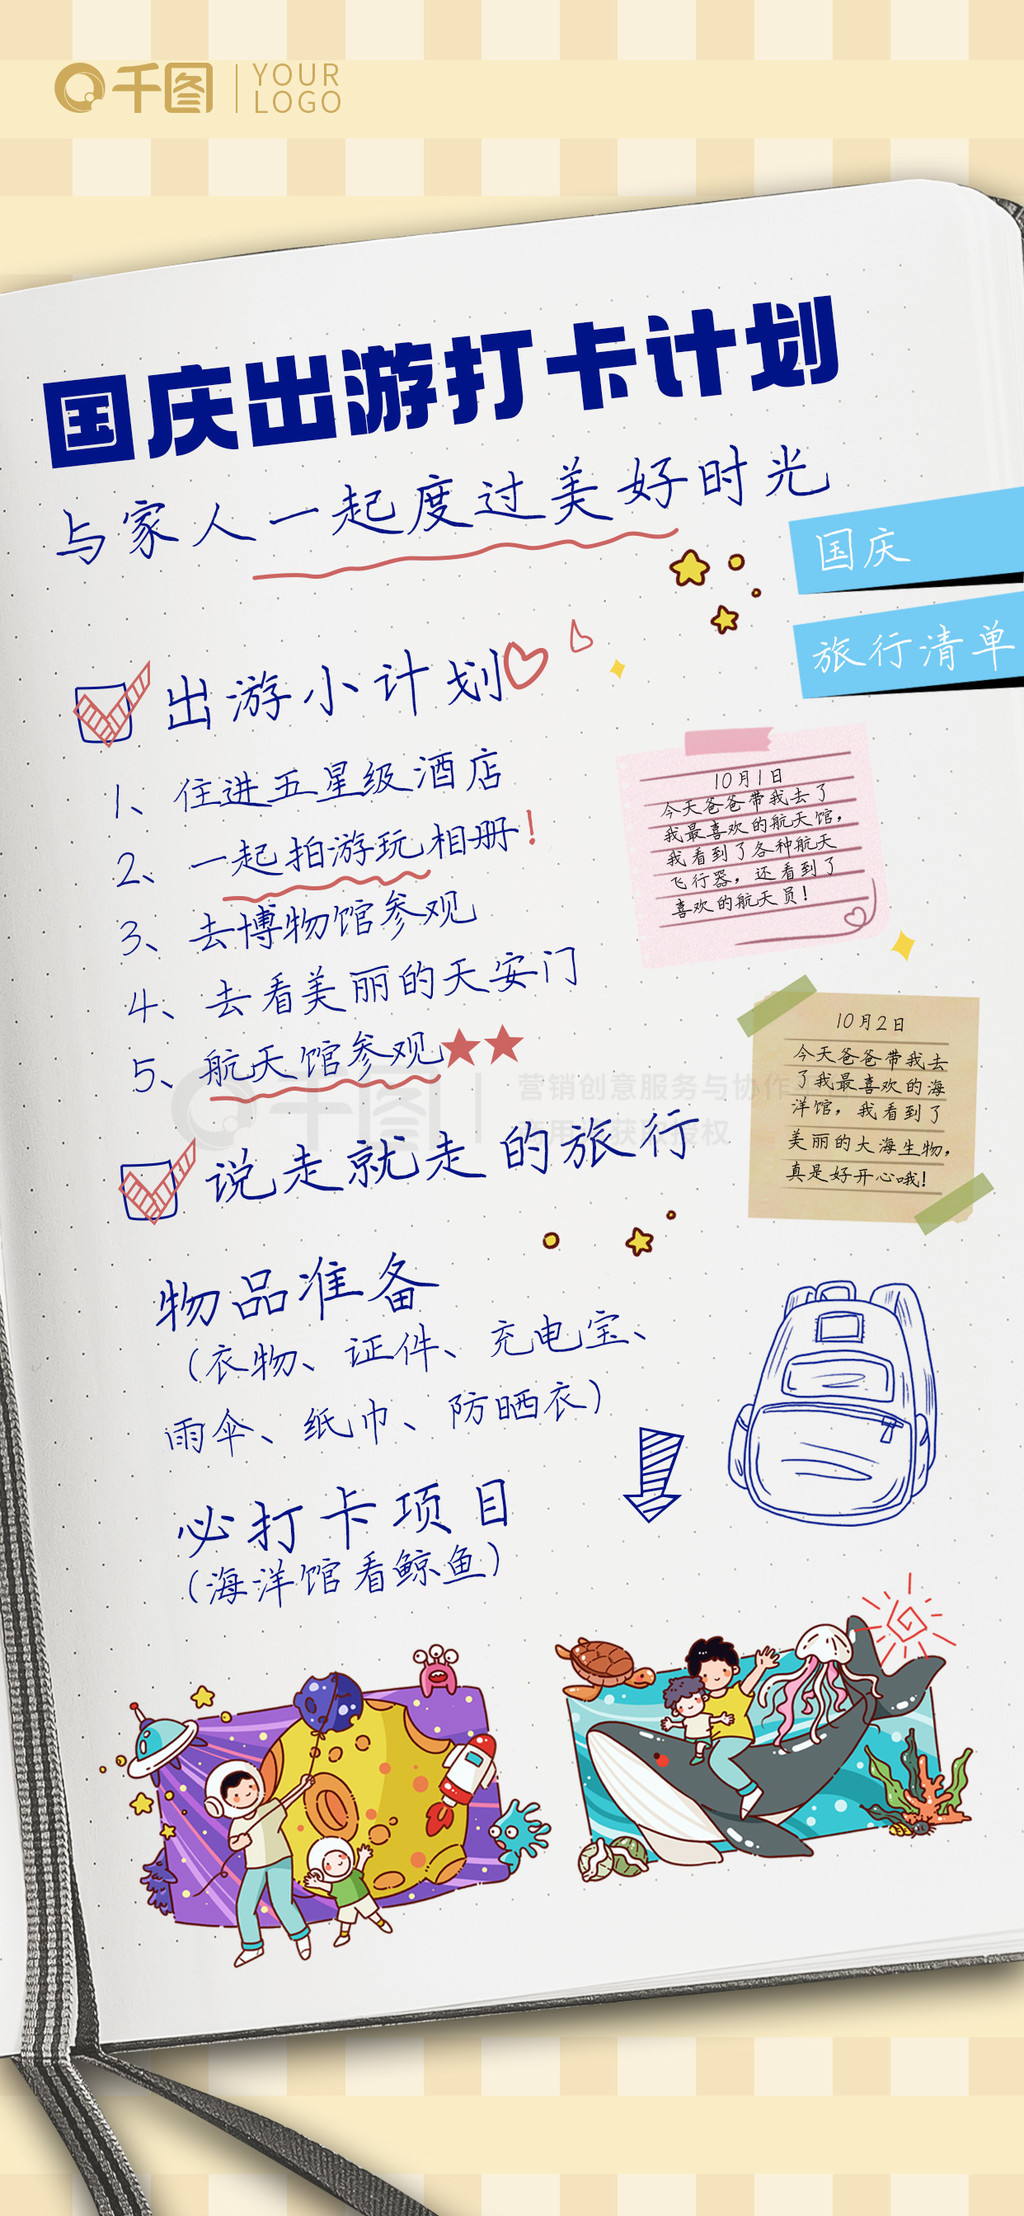 千图 YOUR
LOGO
国庆出游打卡计划
与家人一起度过美好时光
国庆
旅行清单
出游小计划
1、住进五星级酒店
2、一起拍游玩相册!
3、去博物馆参观
4、去看美丽的天安门
5、航天馆参观
10月1日
今天爸爸带我去了
我最喜欢的航天馆，
我看到了各种航天
飞行器，还看到了
喜欢的航天员!
10月2日
今天爸爸带我去
了我最喜欢的海
洋馆，我看到了
美丽的大海生物，
真是好开心哦!
千图
营销创意服务与协作
获取授权
说走就走的旅行
物品准备
（衣物、证件、充电宝、
雨伞、纸巾、防晒衣）
必打卡项目
（海洋馆看鲸鱼）